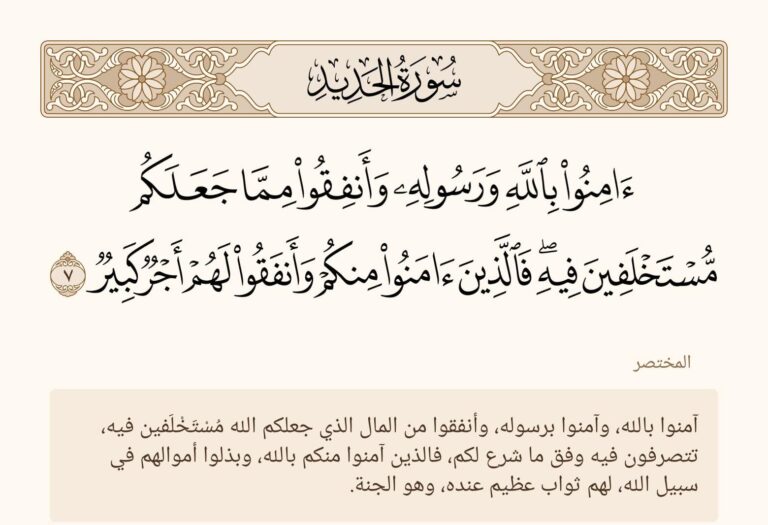 سُورَةُ الحَدِيدِ
ءَامِنُوا۟ بِٱللَّهِ وَرَسُولِهِۦ وَأَنفِقُوا۟ مِمَّا جَعَلَكُم
مُّسْتَخْلَفِينَ فِيهِۖ فَٱلَّذِينَ ءَامَنُوا۟ مِنكُمْ وَأَنفَقُوا۟ لَهُمْ أَجْرٌۭ كَبِيرٌۭ ٧
المختصر
آمنوا بالله، وآمنوا برسوله، وأنفقوا من المال الذي جعلكم الله مُسْتَخْلَفين فيه،
تتصرفون فيه وفق ما شرع لكم، فالذين آمنوا منكم بالله، وبذلوا أموالهم في
سبيل الله، لهم ثواب عظيم عنده، وهو الجنة.